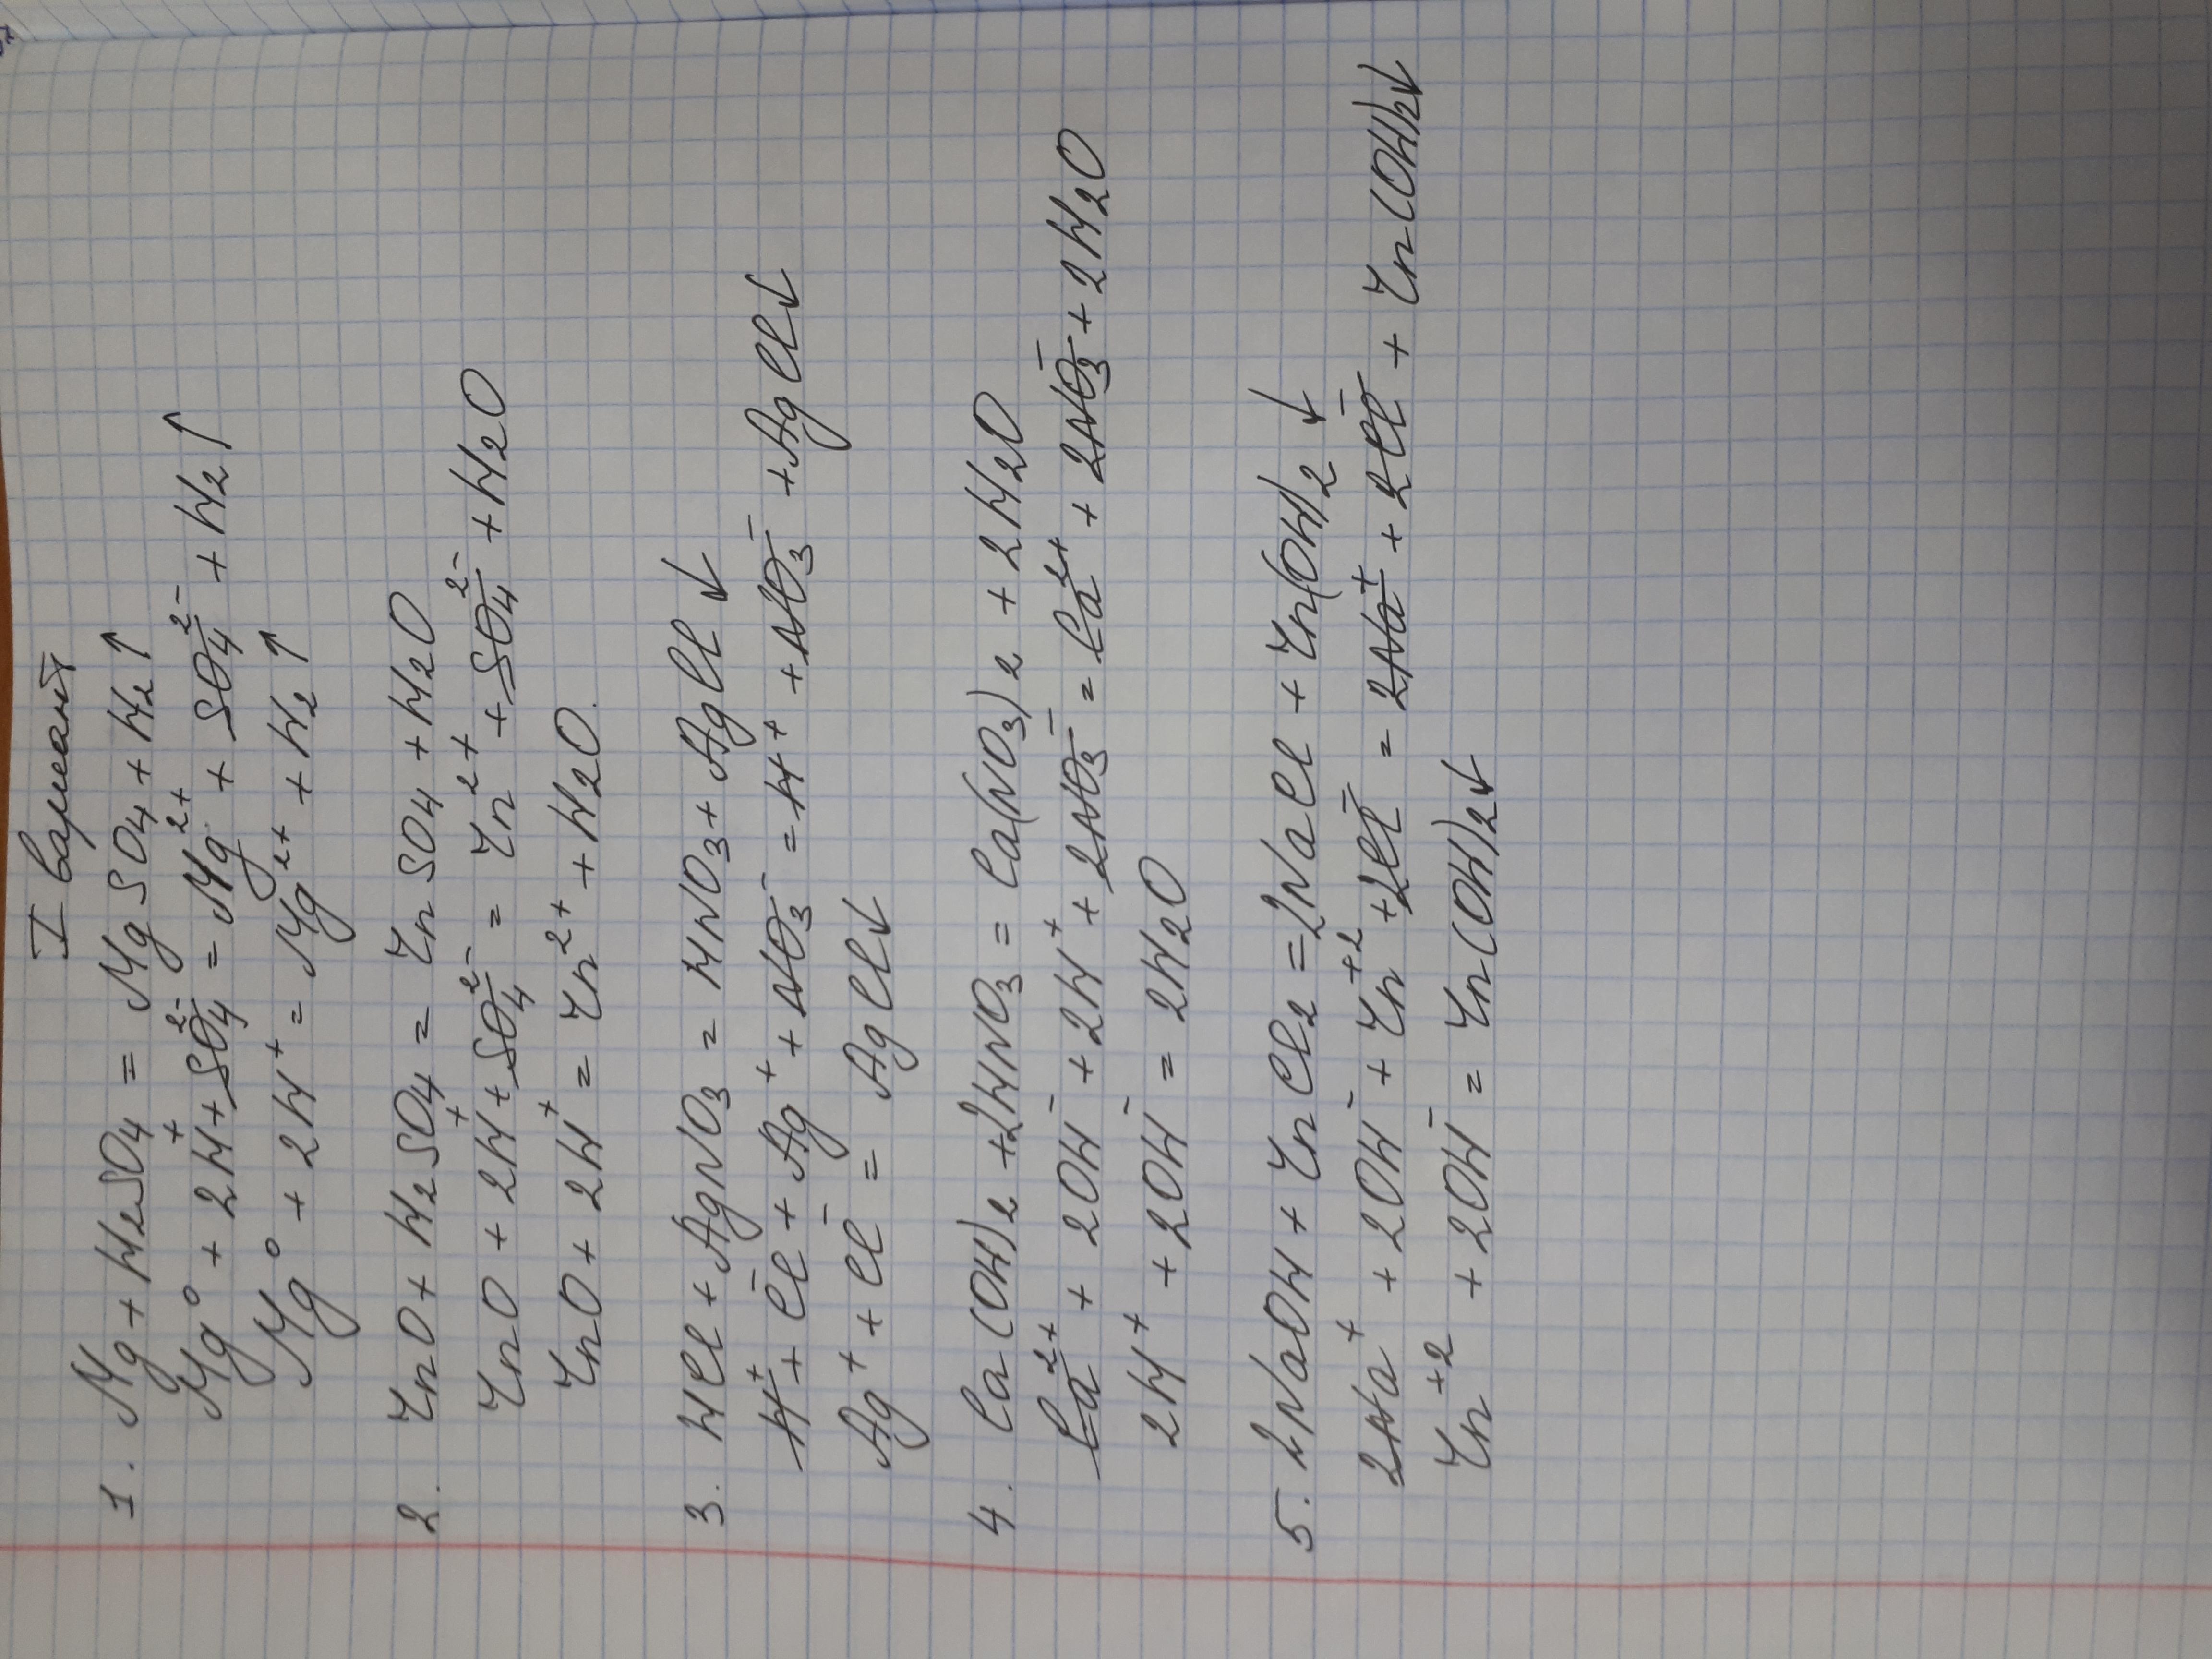 I вариант
1. Mg + H2SO4 = MgSO4 + H2↑
Mg⁰ + 2H⁺ + SO4²⁻ = Mg²⁺ + SO4²⁻ + H2↑
Mg⁰ + 2H⁺ = Mg²⁺ + H2↑
2. ZnO + H2SO4 = ZnSO4 + H2O
ZnO + 2H⁺ + SO4²⁻ = Zn²⁺ + SO4²⁻ + H2O
ZnO + 2H⁺ = Zn²⁺ + H2O.
3. HCl + AgNO3 = HNO3 + AgCl↓
H⁺ + Cl⁻ + Ag⁺ + NO3⁻ = H⁺ + NO3⁻ + AgCl↓
Ag⁺ + Cl⁻ = AgCl↓
4. Ca(OH)2 + 2HNO3 = Ca(NO3)2 + 2H2O
Ca²⁺ + 2OH⁻ + 2H⁺ + 2NO3⁻ = Ca²⁺ + 2NO3⁻ + 2H2O
2H⁺ + 2OH⁻ = 2H2O
5. 2NaOH + ZnCl2 = 2NaCl + Zn(OH)2↓
2Na⁺ + 2OH⁻ + Zn⁺² + 2Cl⁻ = 2Na⁺ + 2Cl⁻ + Zn(OH)2↓
Zn⁺² + 2OH⁻ = Zn(OH)2↓